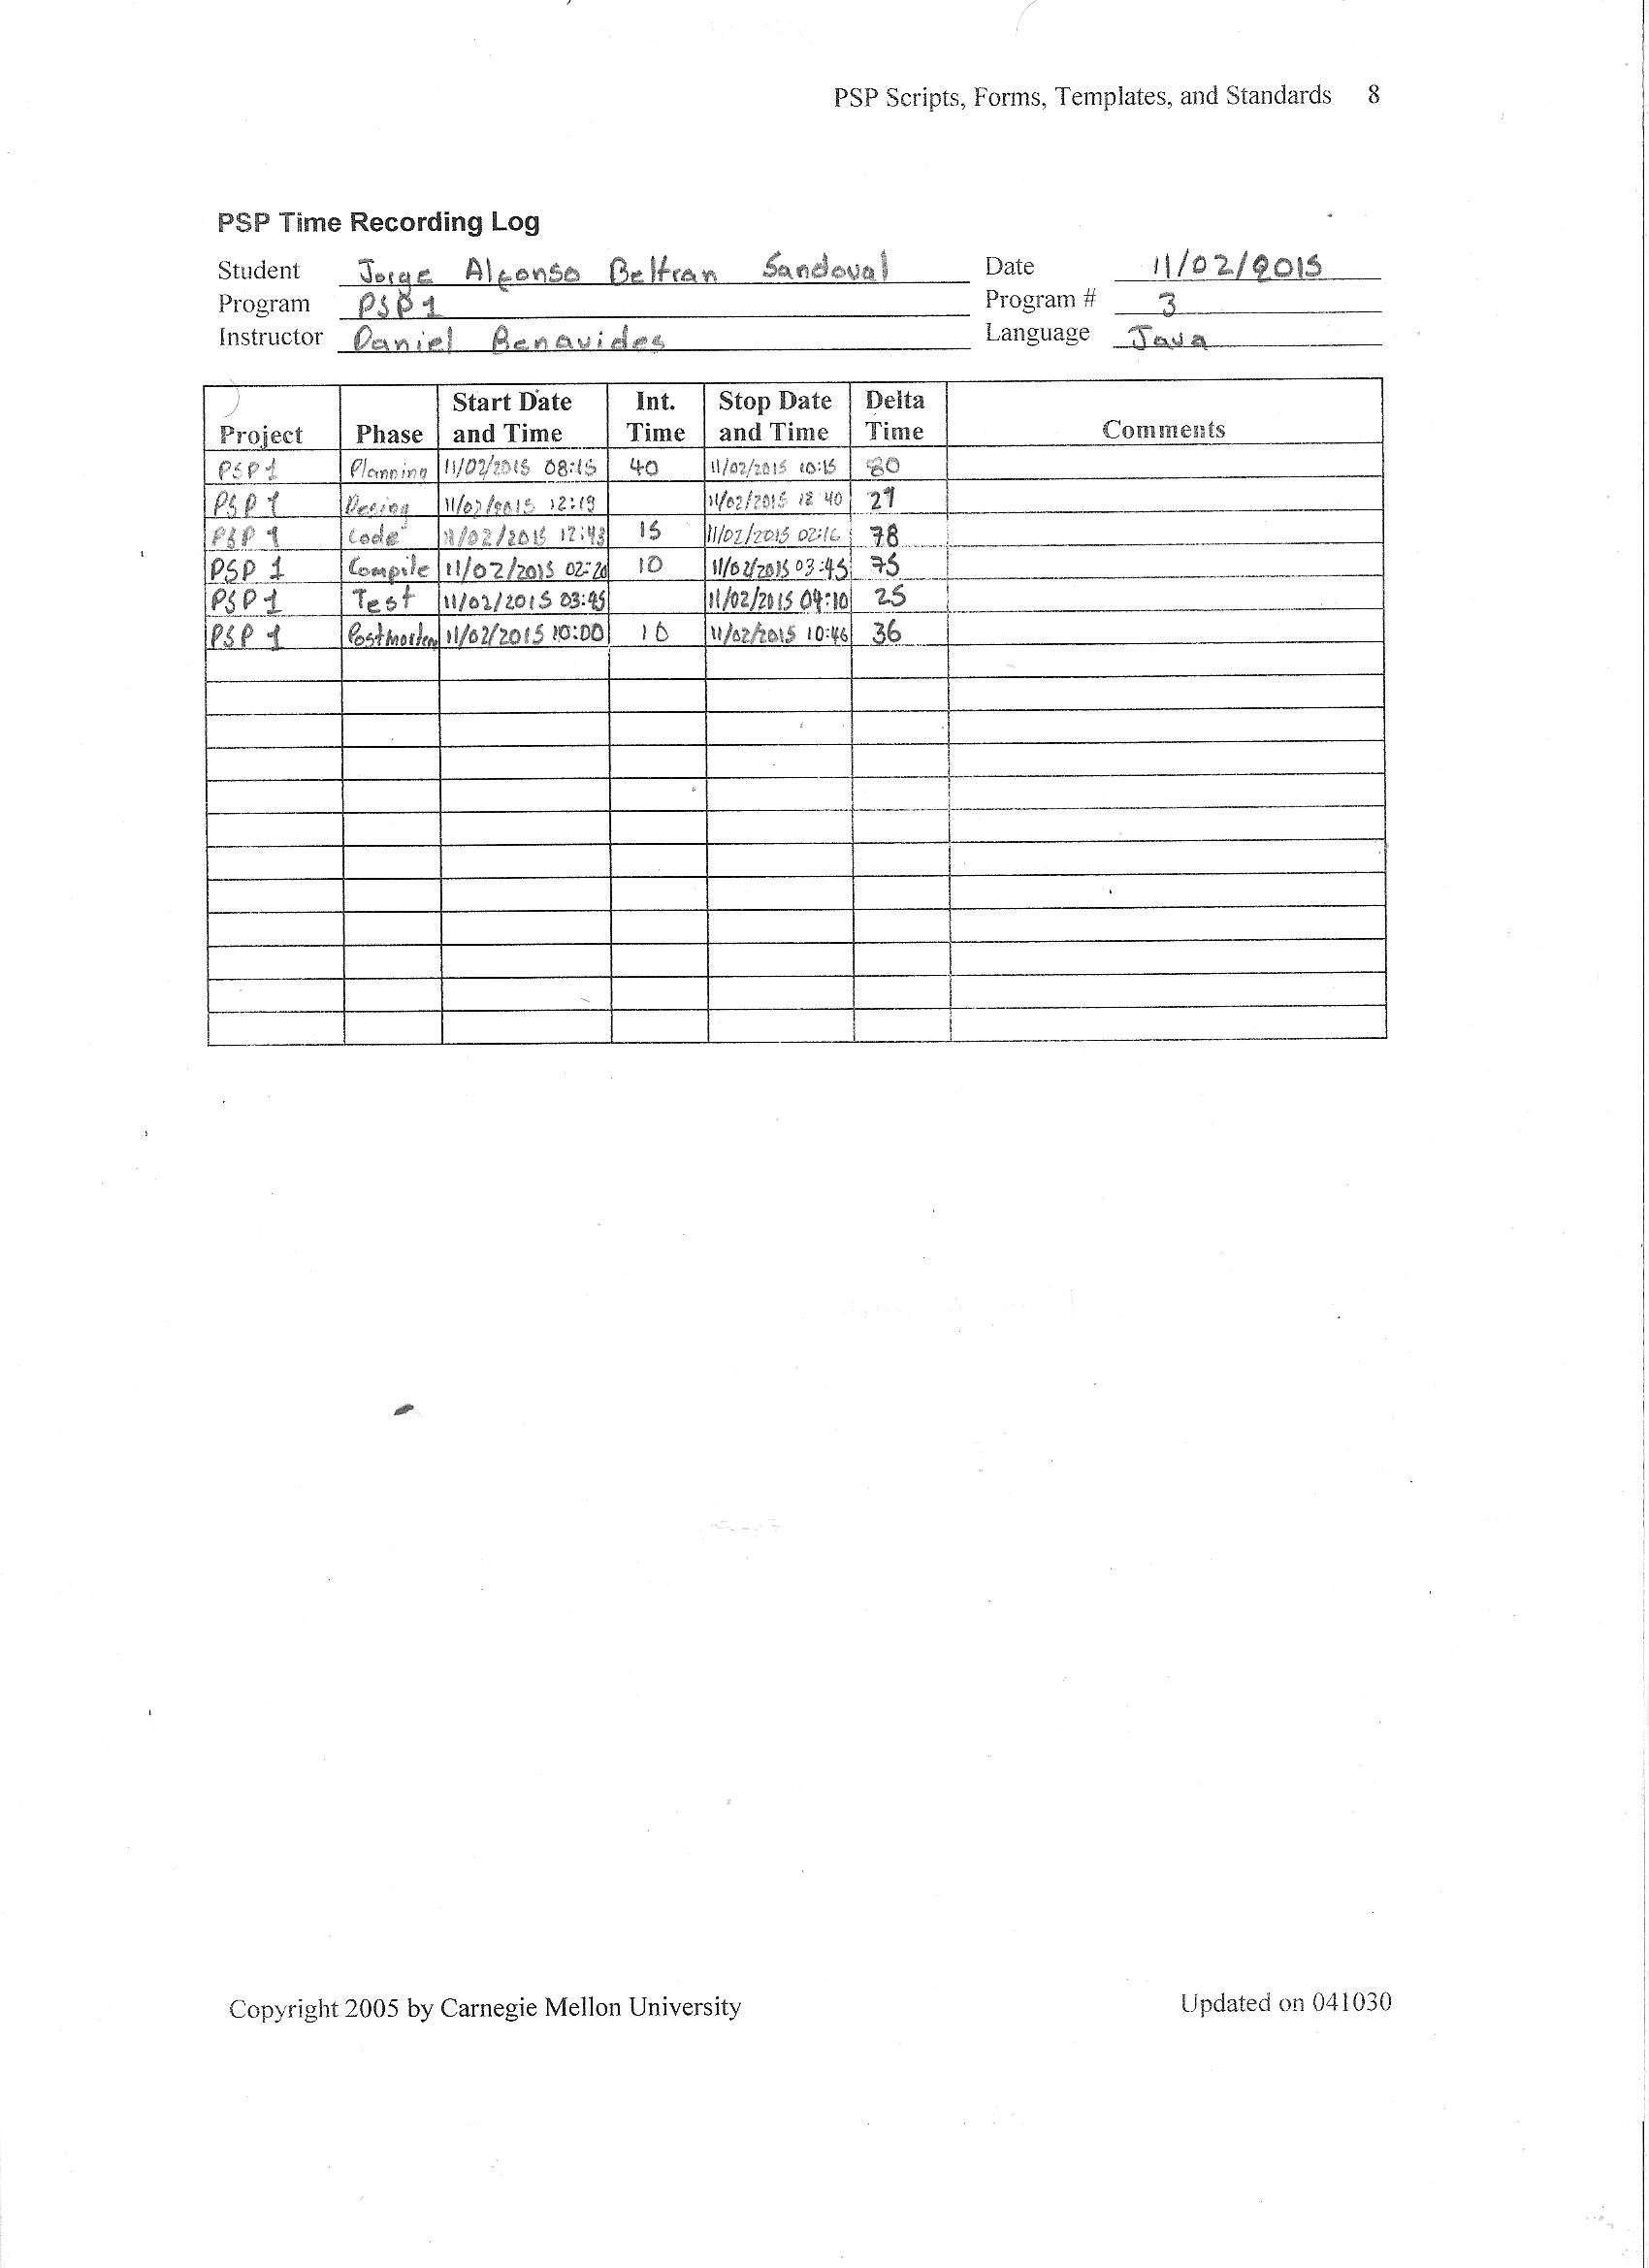 PSP Scripts, Forms, Templates, and Standards 8
PSP Time Recording Log
Student Jorge Alfonso Beltran Sandoval Date 11/02/2015
Program PSP1 Program # 3
Instructor Daniel Benavides Language Java
Project Phase Start Date and Time Int. Time Stop Date and Time Delta Time Comments
PSP1 Planning 11/02/2015 08:15 40 11/02/2015 10:15 80
PSP 1 11/02/2015 12:19 11/02/2015 12:40
PSP 1 Code 11/02/2015 12:43 15 11/02/2015 02:16 78
PSP 1 Compile 11/02/2015 02:20 10 11/02/2015 03:45 75
PSP 1 Test 11/02/2015 03:45 11/02/2015 04:10 25
PSP 1 Postmortem 11/02/2015 10:00 10 11/02/2015 10:46 36
Copyright 2005 by Carnegie Mellon University Updated on 041030